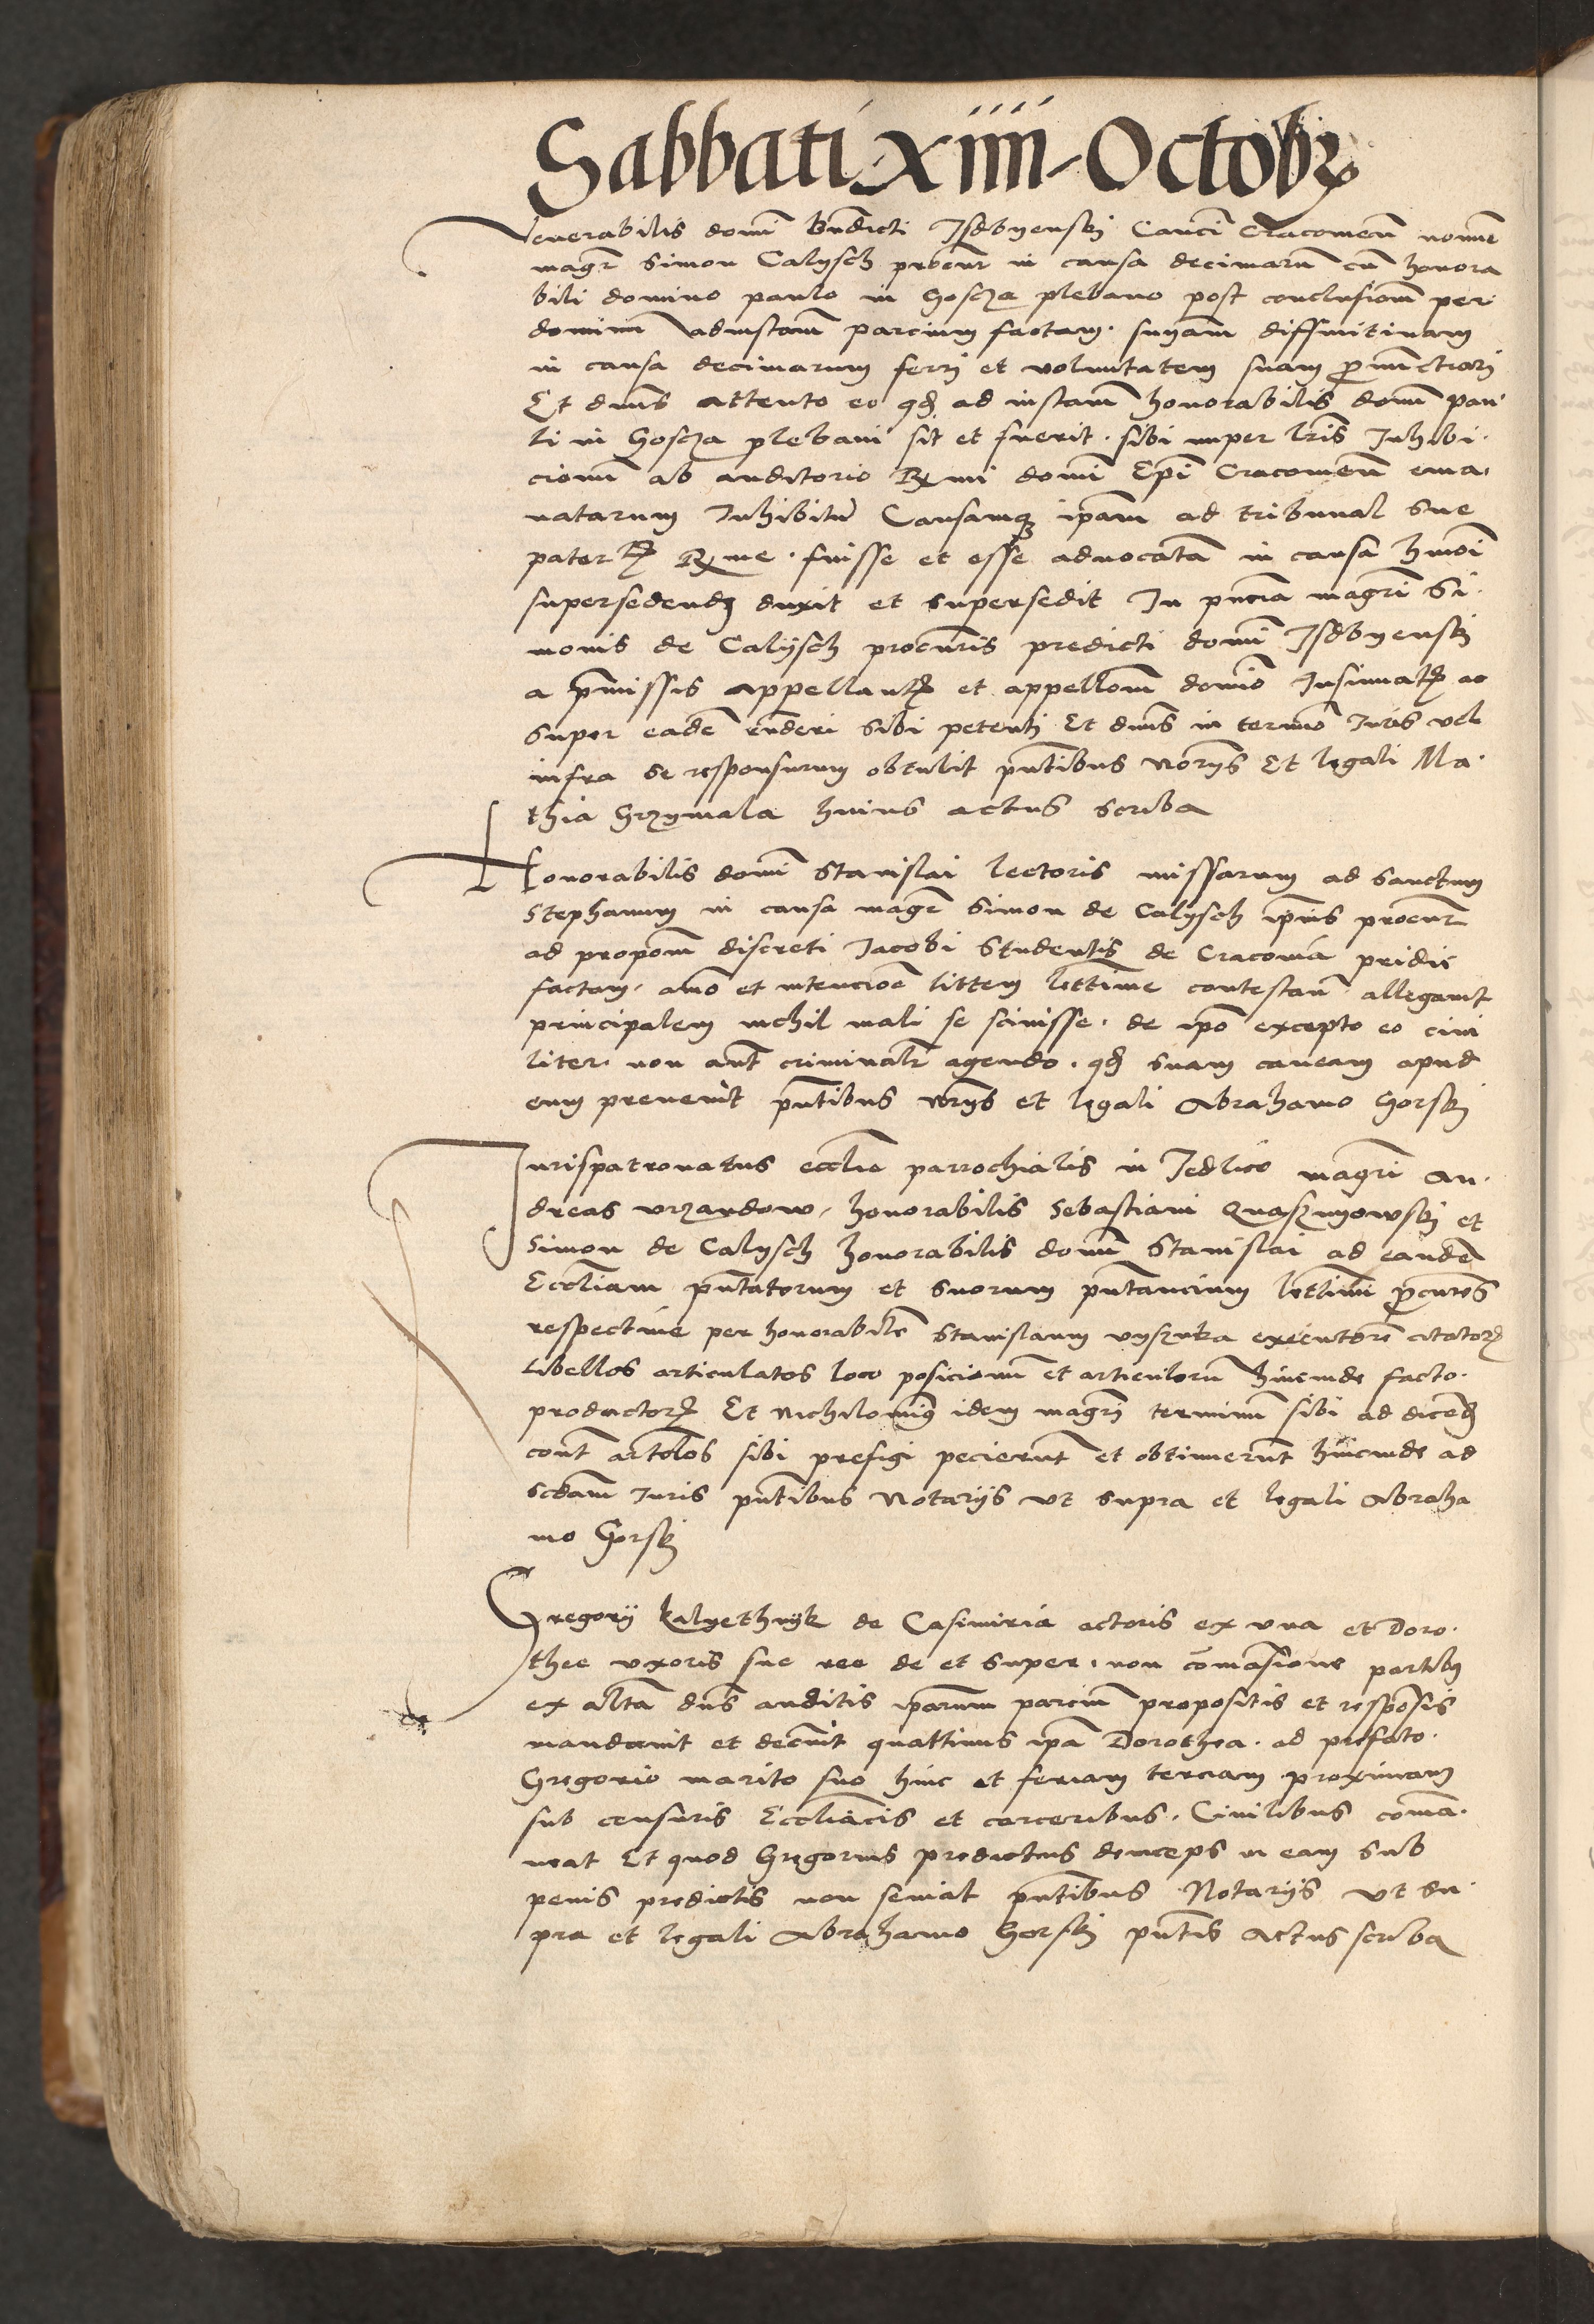 Sabbati xiiii Octobr
Venerabilis domi Bndicti Isdbyenskj Canci Cracomen nomine
magr Simon Calysch procur in causa decimaru cu honora
bili domino paulo in Goscza plebano post conclusiom per
dominu ad instam parcium factam. sniam diffinitivam
in causa decimarum ferrj et voluntatem suam
Et dnus attento eo qd ad instam honorabilis domi pau
li in Goscza plebani sit et fuerit. sibi nuper lris Inhibi
cionum ab auditorio Rmi domi Epi Cracomen ema
natarum Inhibitu Causamq ipam ad tribunal sue
pater Rme. fuisse et esse advocata in causa hmoi
supersedendu duxit et supersedit In pncia magri Si
monis de Calijsch procuris predicti domi Isdbyenskj
a pmissis appellant et appellom domio Insinuat ac
super eade rnderi sibi petentj Et dnus in termio Iuris vel
infra se responsurum obtulit pntibus Norijs Et legali Ma
thia Grzymala huius actus scriba
Honorabilis domi Stanislai lectoris missarum ad sanctum
Stephanum in causa magr Simon de Calysch ipius procur
ad propom discreti Jacobi Studentis de Cracovia pridie
factam, aio et intencioe littem lttime contestan allegavit
principalem nichil mali se scivisse. de ipo excepto eo civi
liter. non aut criminalr agendo. qd suam caveam apud
eum prevenit pntibus norijs et legali Abrahamo Gorskj
Jurispatronatus ecclie parrochialis in Jedlcze magri An
dreas Urzandow, honorabilis Sebastiani Quaszmyowskj et
Simon de Calysch honorabilis domi Stanislai ad eande
Eccliam pntatorum et suorum pntancium lttimi procures
respective per honorabile Stanislaum executore citator
Libellos articulatos loco posicionu et articuloru hincinde facto
productor Et nichilominus idem magri terminu sibi ad dicend
cont artclos sibi prefigi pecierunt et obtinuerunt hincinde ad
scdam Iuris pntibus Notarijs ut supra et legali Abraha
mo Gorskj
Gregorij kalyethnyk de Casimiria actoris ex una et Doro
thee uxoris sue ree de et super. non comansione partibus
ex alta dnus auditis iparum parciu propositis et responsis
mandavit et decrevit quattinus ipa Dorothea. ad prefato
Gregorio marito suo hinc et feriam terciam proximam
sub censuris Eccliacis et carceribus. Civilibus coma
neat Et quod Gregorius predictus deinceps in eam sub
penis predictis non seviat pntibus Notarijs ut su
pra et legali Abrahamo Gorskj pntis actus scriba